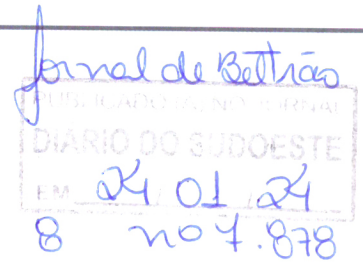 Jornal de Beltrão
PUBLICADO NO JORNAL
DIARIO DO SUDOESTE
EM 24 01 24
8 no 7.878